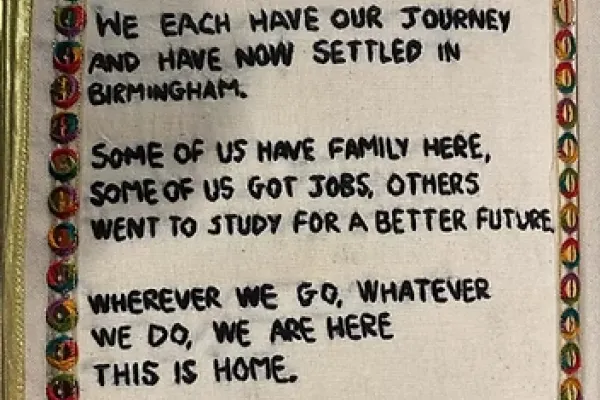 WE EACH HAVE OUR JOURNEY
AND HAVE NOW SETTLED IN
BIRMINGHAM.
SOME OF US HAVE FAMILY HERE,
SOME OF US GOT JOBS, OTHERS
WENT TO STUDY FOR A BETTER FUTURE.
WHEREVER WE GO, WHATEVER
WE DO, WE ARE HERE
THIS IS HOME.